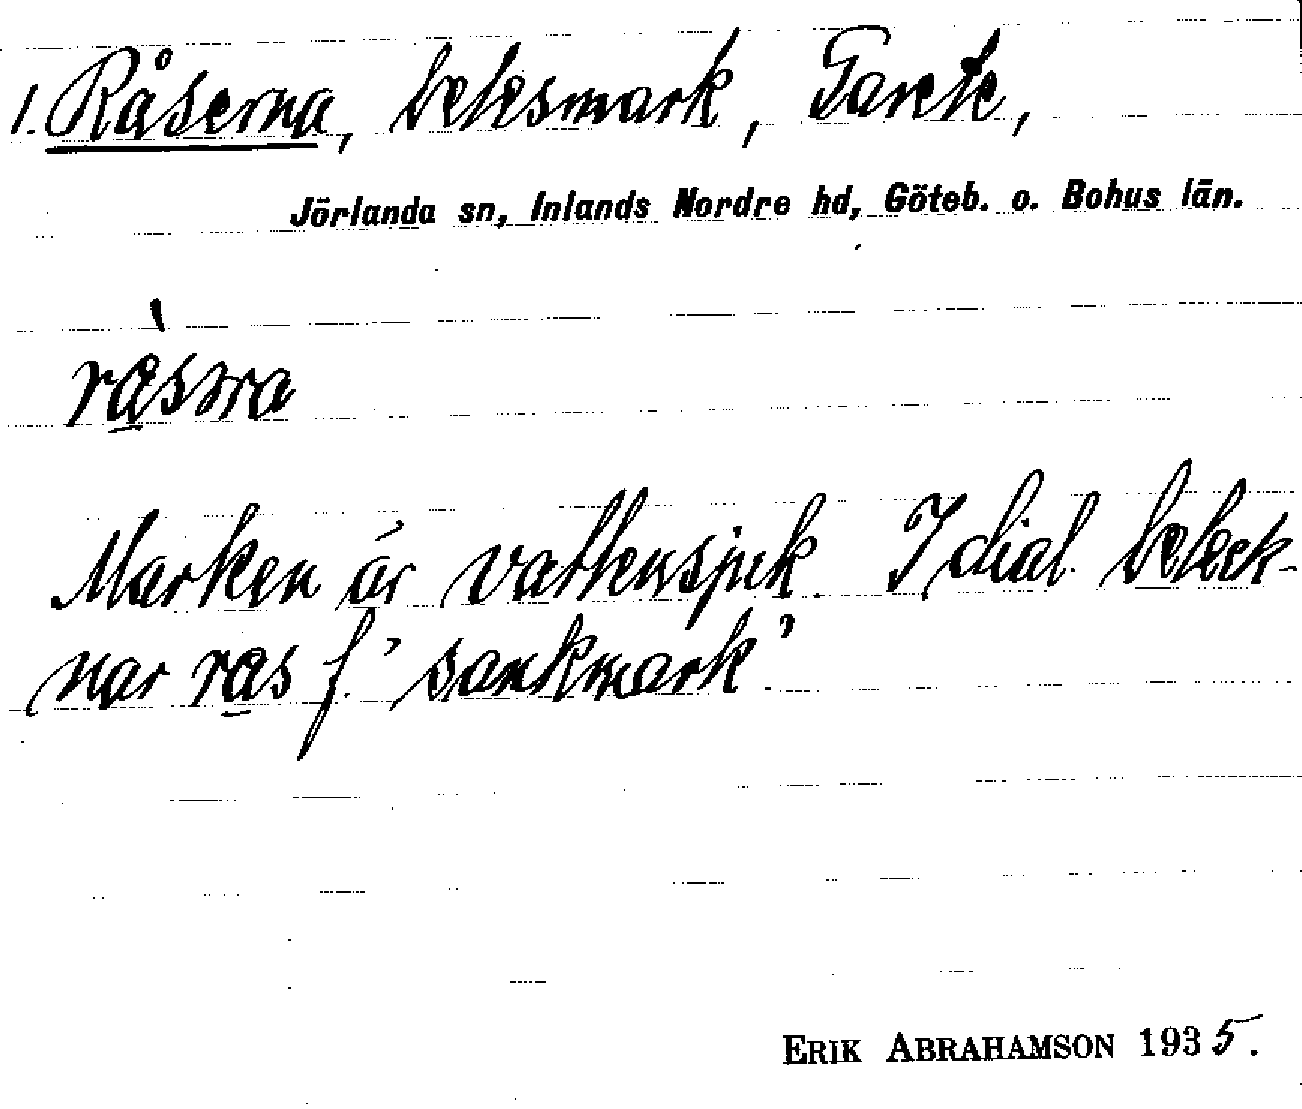 1. Råserna, betesmark, Tarete,
Jörlanda sn, Inlands Nordre hd, Göteb. o. Bohus län.
råsṇa
Marken är vattensjuk. I dial. beteck-
nar ra̱s f. 'sankmark'
ERIK ABRAHAMSON 1935.